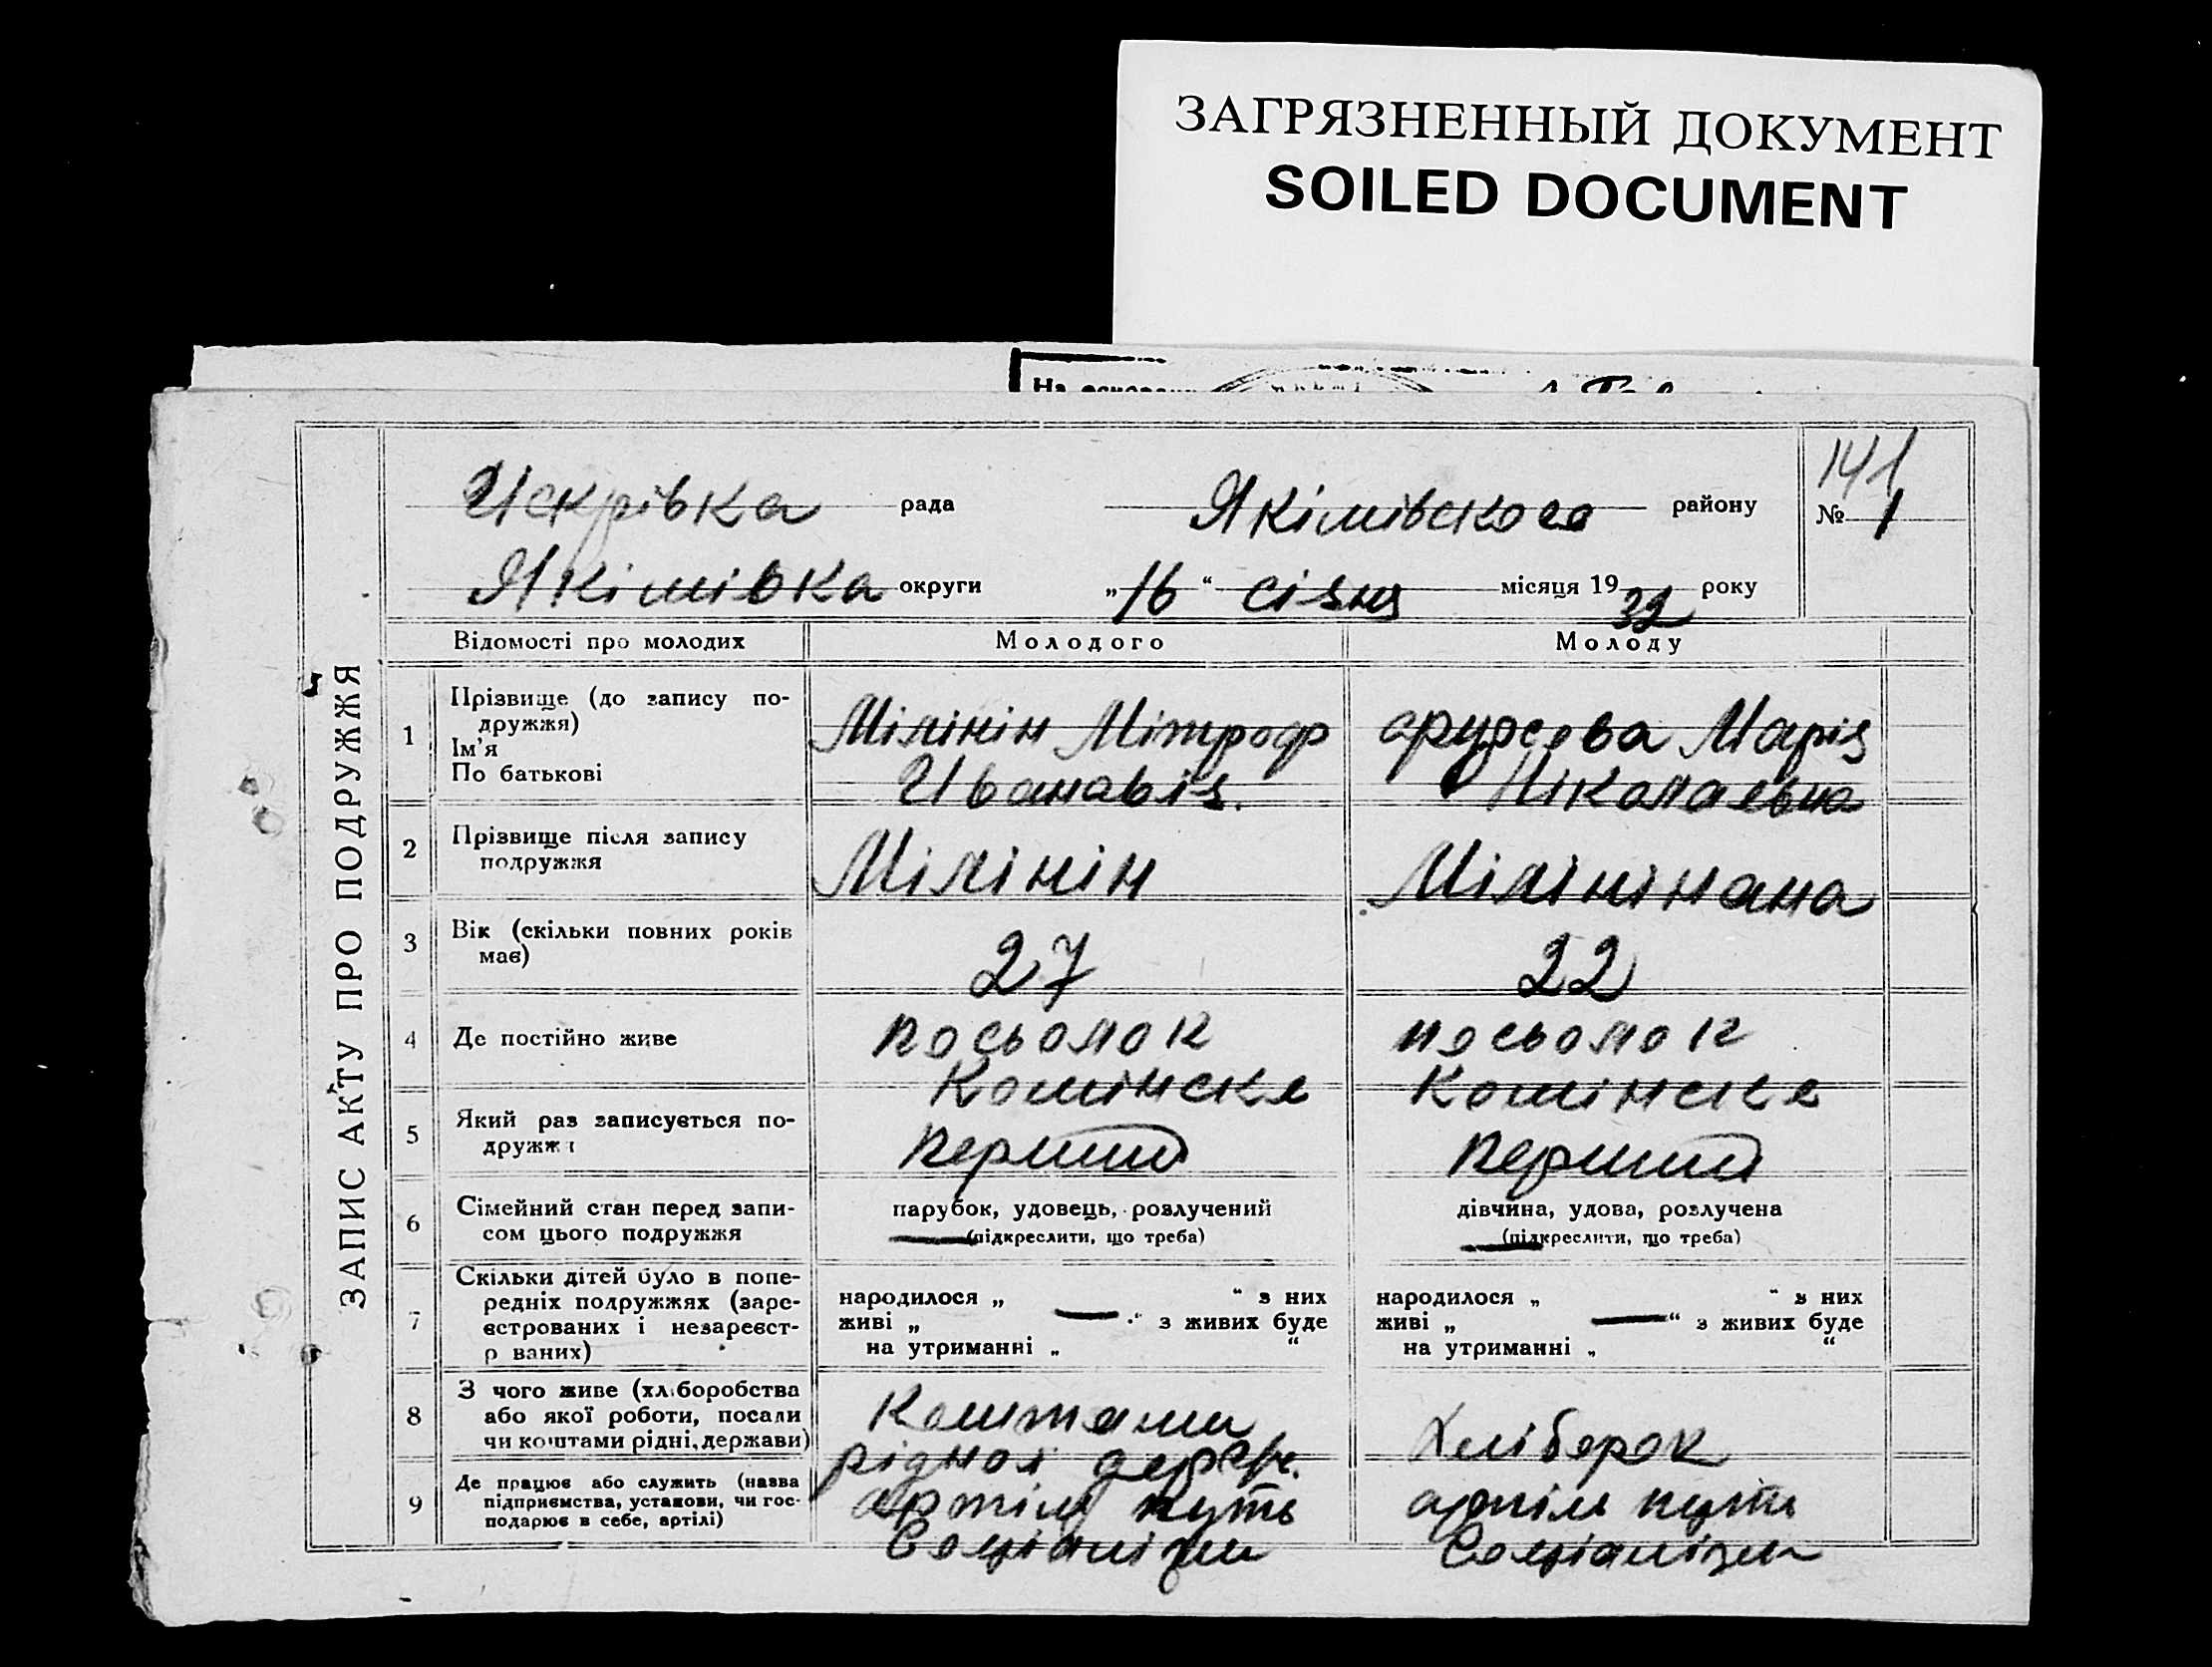 ЗАГРЯЗНЕННЫЙ ДОКУМЕНТ
SOILED DOCUMENT
На
141
Искрівка рада Якімівского району № 1
Якімівка округи „16“ січня місяця 1932 року
ЗАПИС АКТУ ПРО ПОДРУЖЖЯ
Відомості про молодих Молодого Молоду
1 Прізвище (до запису по-
дружжя)
Ім’я
По батькові
Мілінін Мітроф
Иванавіч.
Марія
Ніколаевна
2 Прізвище після запису
подружжя
Мілінін
Мілінінана
3 Вік (скільки повних років
має)
27
22
4 Де постійно живе
посьолок
Комінске
посьолок
Комінске
5 Який раз записується по-
дружжя
перший
перший
6 Сімейний стан перед запи-
сом цього подружжя
парубок, удовець, розлучений
(підкреслити, що треба)
дівчина, удова, розлучена
(підкреслити, що треба)
7 Скільки дітей було в попе-
редніх подружжях (заре-
єстрованих і незареєст-
р ваних)
народилося „ “ з них
живі „ — “ з живих буде
на утриманні „ “
народилося „ “ з них
живі „ — “ з живих буде
на утриманні „ “
8 З чого живе (хліборобства
або якої роботи, посади
чи коштами рідні, держави)
Коштами
рідной держ.
Хліборок
9 Де працює або служить (назва
підприємства, установи, чи гос-
подарює в себе, артілі)
артіль путь
Соціалізм
артіль путь
Соціалізм